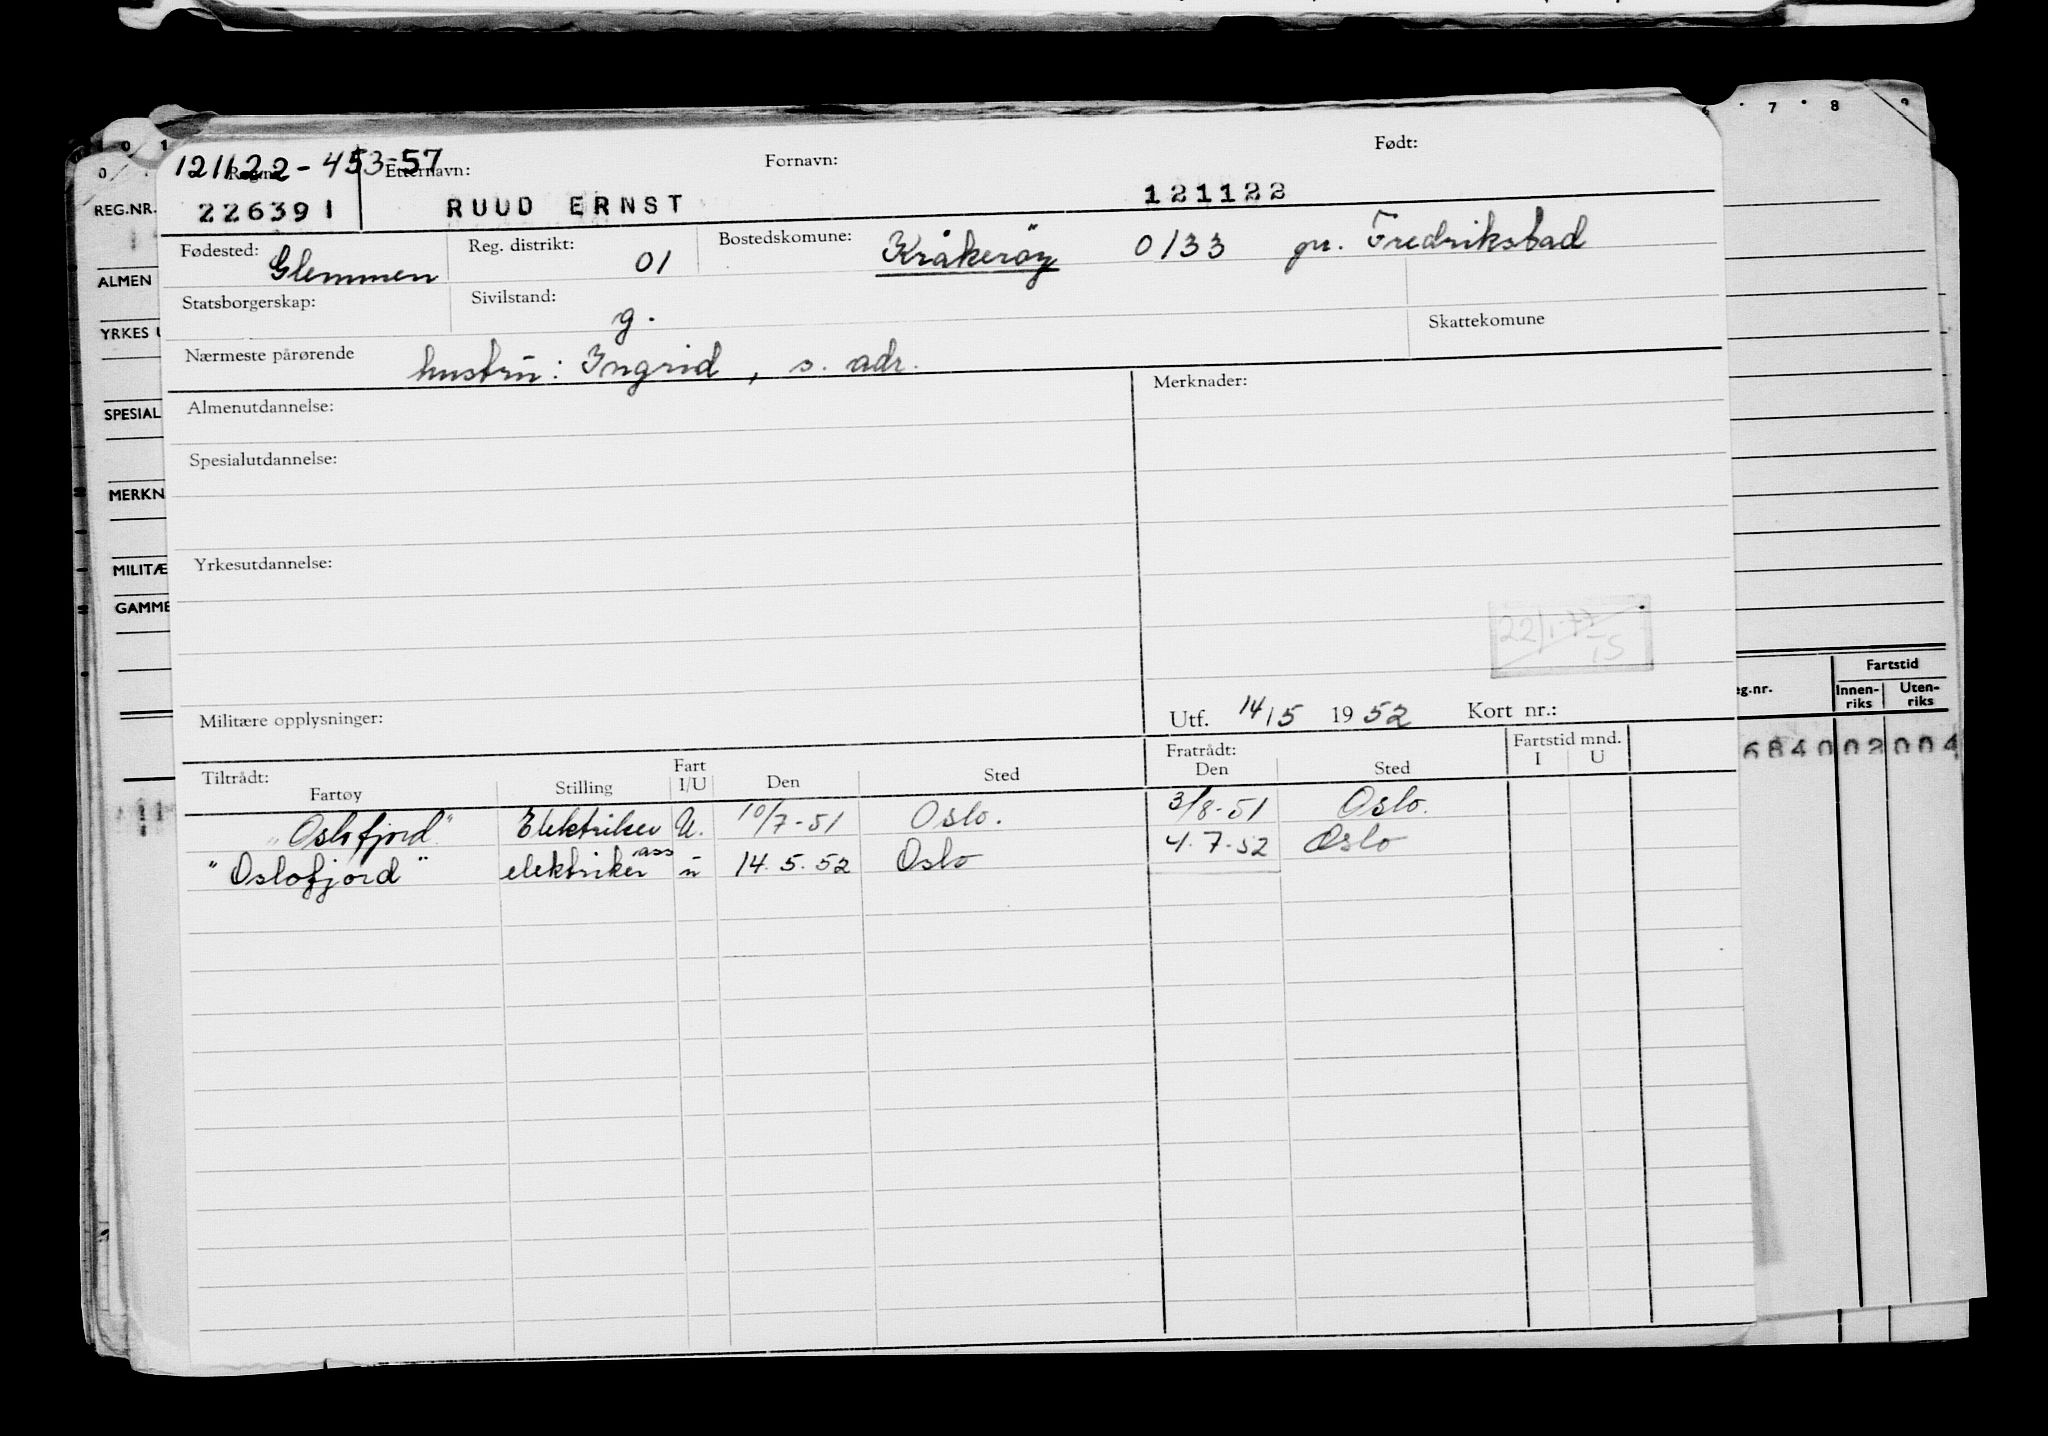 0 1 6 7 8 9
0
121122-453-57
Reg.nr. Etternavn: Fornavn: Født:
REG.NR. 226391 RUUD ERNST 121122
Fødested: Glemmen Reg. distrikt: 01 Bostedskomune: Kråkerøy 0133 pr. Fredrikstad
ALMEN
Statsborgerskap: Sivilstand: g. Skattekomune
YRKES U
Nærmeste pårørende hustru: Ingrid, s. adr.
Almenutdannelse: Merknader:
SPESIAL
Spesialutdannelse:
MERKN
Yrkesutdannelse:
MILITÆ
GAMME
22/1-77
15
Fartstid
eg.nr. Innen-riks Uten-riks
Militære opplysninger: Utf. 14/5 1952 Kort nr.:
6840 002 004
Tiltrådt: Fratrådt: Fartstid mnd.
Fartøy Stilling Fart I/U Den Sted Den Sted I U
"Oslofjord" Elektriker U. 10/7-51 Oslo. 3/8-51 Oslo.
"Oslofjord" elektriker ass u 14.5.52 Oslo 4.7.52 Oslo